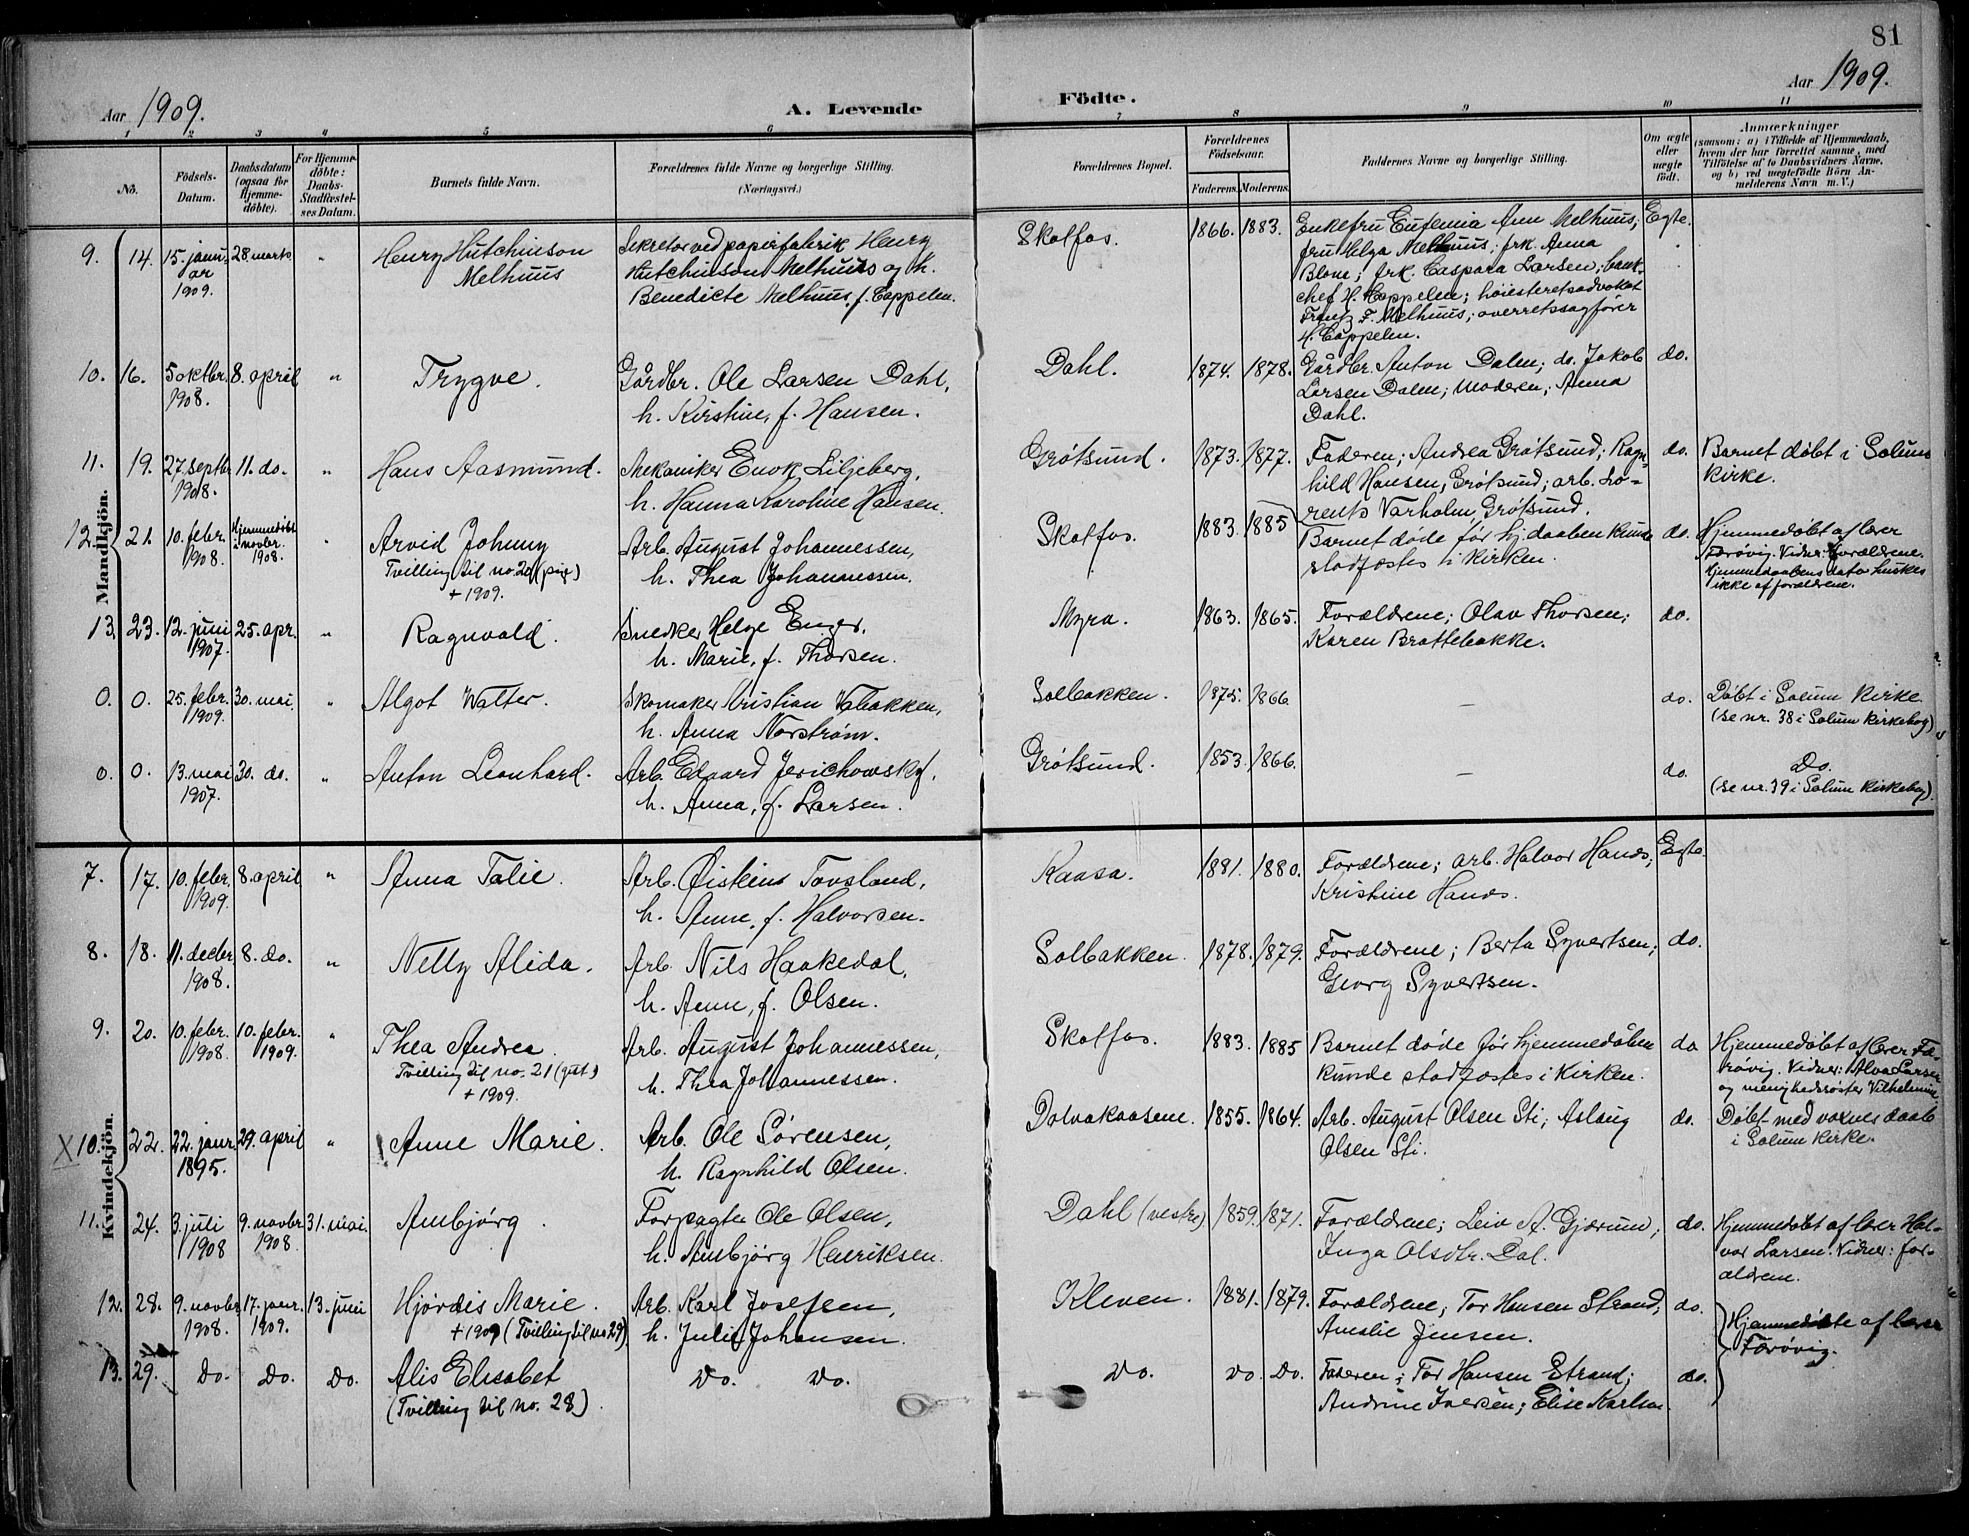 81
Aar 1909.
A. Levende
Födte.
Aar 1909.
1 2 3 4 5 6 7 8 9 10 11
No.
Födsels-
Datum.
Daabsdatum
(ogsaa for
Hjemme-
döbte).
For Hjemme-
döbte:
Daabs-
Stadfæstel-
ses Datum.
Barnets fulde Navn.
Forældrenes fulde Navne og borgerlige Stilling.
(Næringsvei.)
Forældrenes Bopæl.
Forældrenes
Födselsaar.
Faderens. Moderens.
Faddernes Navne og borgerlige Stilling.
Om ægte
eller
uægte
födt.
Anmærkninger
(saasom: a) i Tilfælde af Hjemmedaab,
hvem der har forrettet samme, med
Tilföielse af to Daabsvidners Navne,
og b) ved uægtefödte Börn An-
melderens Navn m. V.)
Mandkjön.
9. 14. 15. janu-
ar
1909. 28. marts "
Henry Hutchinson
Melhuus
Sekretær ved papirfabrik Henry
Hutchinson Melhuus og h.
Benedicte Melhuus, f. Cappelen.
Skotfos. 1866. 1883.
Enkefru Eufemia Ann Melhuus;
fru Helga Melhuus; frk. Anna
Blom; frk. Caspara Larsen; bank-
chef H. Cappelen; høiesteretsadvokat
Frantz F. Melhuus; overretssagfører
H. Cappelen.
Egte.
10. 16. 5 oktbr.
1908. 8. april "
Trygve.
Gårdbr. Ole Larsen Dahl,
h. Kirstine, f. Hansen.
Dahl. 1874. 1878.
Gårdbr. Anton Dalen; do. Jakob
Larsen Dalen; Moderen; Anna
Dahl.
do.
11. 19. 27. septbr.
1908. 11. do. "
Hans Aasmund.
Mekaniker Enok Liljeberg,
h. Hanna Karoline Hansen.
Grötsund. 1873. 1877.
Faderen; Andrea Grötsund; Ragn-
hild Hansen, Grötsund; arb. Lo-
rents Varholm Grötsund.
do. Barnet døbt i Solum
kirke.
12. 21. 10. febr.
1908. Hjemmedøbt
i novbr.
1908. "
Arvid Johnny
Tvilling til no. 20 (pige)
+ 1909.
Arb. August Johannessen,
h. Thea Johannessen.
Skotfos. 1883. 1885
Barnet døde før hj.daaben kunde
stadfæstes i kirken.
do. Hjemmedøbt af lærer
Færøvig. Vidner: Forældrene.
Hjemmedaabens dato huskes
ikke af forældrene.
13. 23. 12. juni
1907. 25. apr. "
Ragnvald.
Snedker Helge Enger,
h. Marie, f. Thorsen.
Myra. 1863. 1865.
Forældrene; Olav Thorsen;
Karen Brattebakke.
do.
0. 0. 25. febr.
1909. 30. mai. "
Algot Walter.
Skomaker Kristian Vabakken,
h. Anna Norstrøm.
Solbakken. 1875. 1866.
—
do. Døbt i Solum kirke
(se nr. 38 i Solum kirkebog).
0. 0. 13. mai
1907. 30. do. "
Anton Leonhard.
Arb. Edvard Jerichowsky,
h. Anna, f. Larsen.
Grötsund. 1853. 1866.
—
do. Do.
(se nr. 39 i Solum kirkebog).
Kvindekjön.
7. 17. 10. febr.
1909. 8. april "
Anna Talie.
Arb. Øistein Tovsland,
h. Anne, f. Halvorsen.
Kaasa. 1881. 1880.
Forældrene; arb. Halvor Hanås;
Kristine Hanås.
Egte.
8. 18. 11. decbr.
1908. 8. do. "
Nelly Alida.
Arb. Nils Haakedal,
h. Anne, f. Olsen.
Solbakken. 1878. 1879.
Forældrene; Berta Syvertsen;
Georg Syvertsen.
do.
9. 20. 10. febr.
1908. 10. febr.
1909. "
Thea Andrea.
Tvilling til no. 21 (gut.)
+ 1909.
Arb. August Johannessen,
h. Thea Johannessen.
Skotfos. 1883. 1885
Barnet døde før hjemmedåben
kunde stadfæstes i kirken.
do Hjemmedøbt af lærer Fæ-
røvig. Vidner: Alva Larsen
og menighedssøster Vilhelmine
X 10. 22. 22. janr.
1895. 29. april "
Anne Marie.
Arb. Ole Sørensen,
h. Ragnhild Olsen.
Dolvakaasene. 1855. 1864.
Arb. August Olsen Sti; Aslaug
Olsen Sti.
do. Døbt med voxnes daab
i Solum kirke.
11. 24. 3. juli
1908 9. novbr.
1908. 31. mai.
Ambjørg.
Forpagter Ole Olsen,
h. Ambjørg Henriksen.
Dahl (vestre) 1859. 1871.
Forældrene; Leiv A. Gjærum;
Inga Olsdtr. Dal.
do. Hjemmedøbt af lærer Hal-
vor Larsen. Vidner: for-
ældrene.
12. 28. 9. novbr.
1908. 17. janr.
1909. 13. juni
Hjørdis Marie.
+ 1909 (Tvilling til no 29)
Arb. Karl Josefsen,
h. Julie Johansen.
Kleven. 1881. 1879.
Forældrene; Tor Hansen Strand;
Amalie Jensen.
do. Hjemmedøbte af lærer
Færøvig.
13. 29. Do. Do. Do.
Alis Elisabet
(Tvilling til no. 28).
Do. Do.
Do. Do. Do.
Faderen; Tor Hansen Strand;
Andrine Iversen; Elise Karlsen
do.